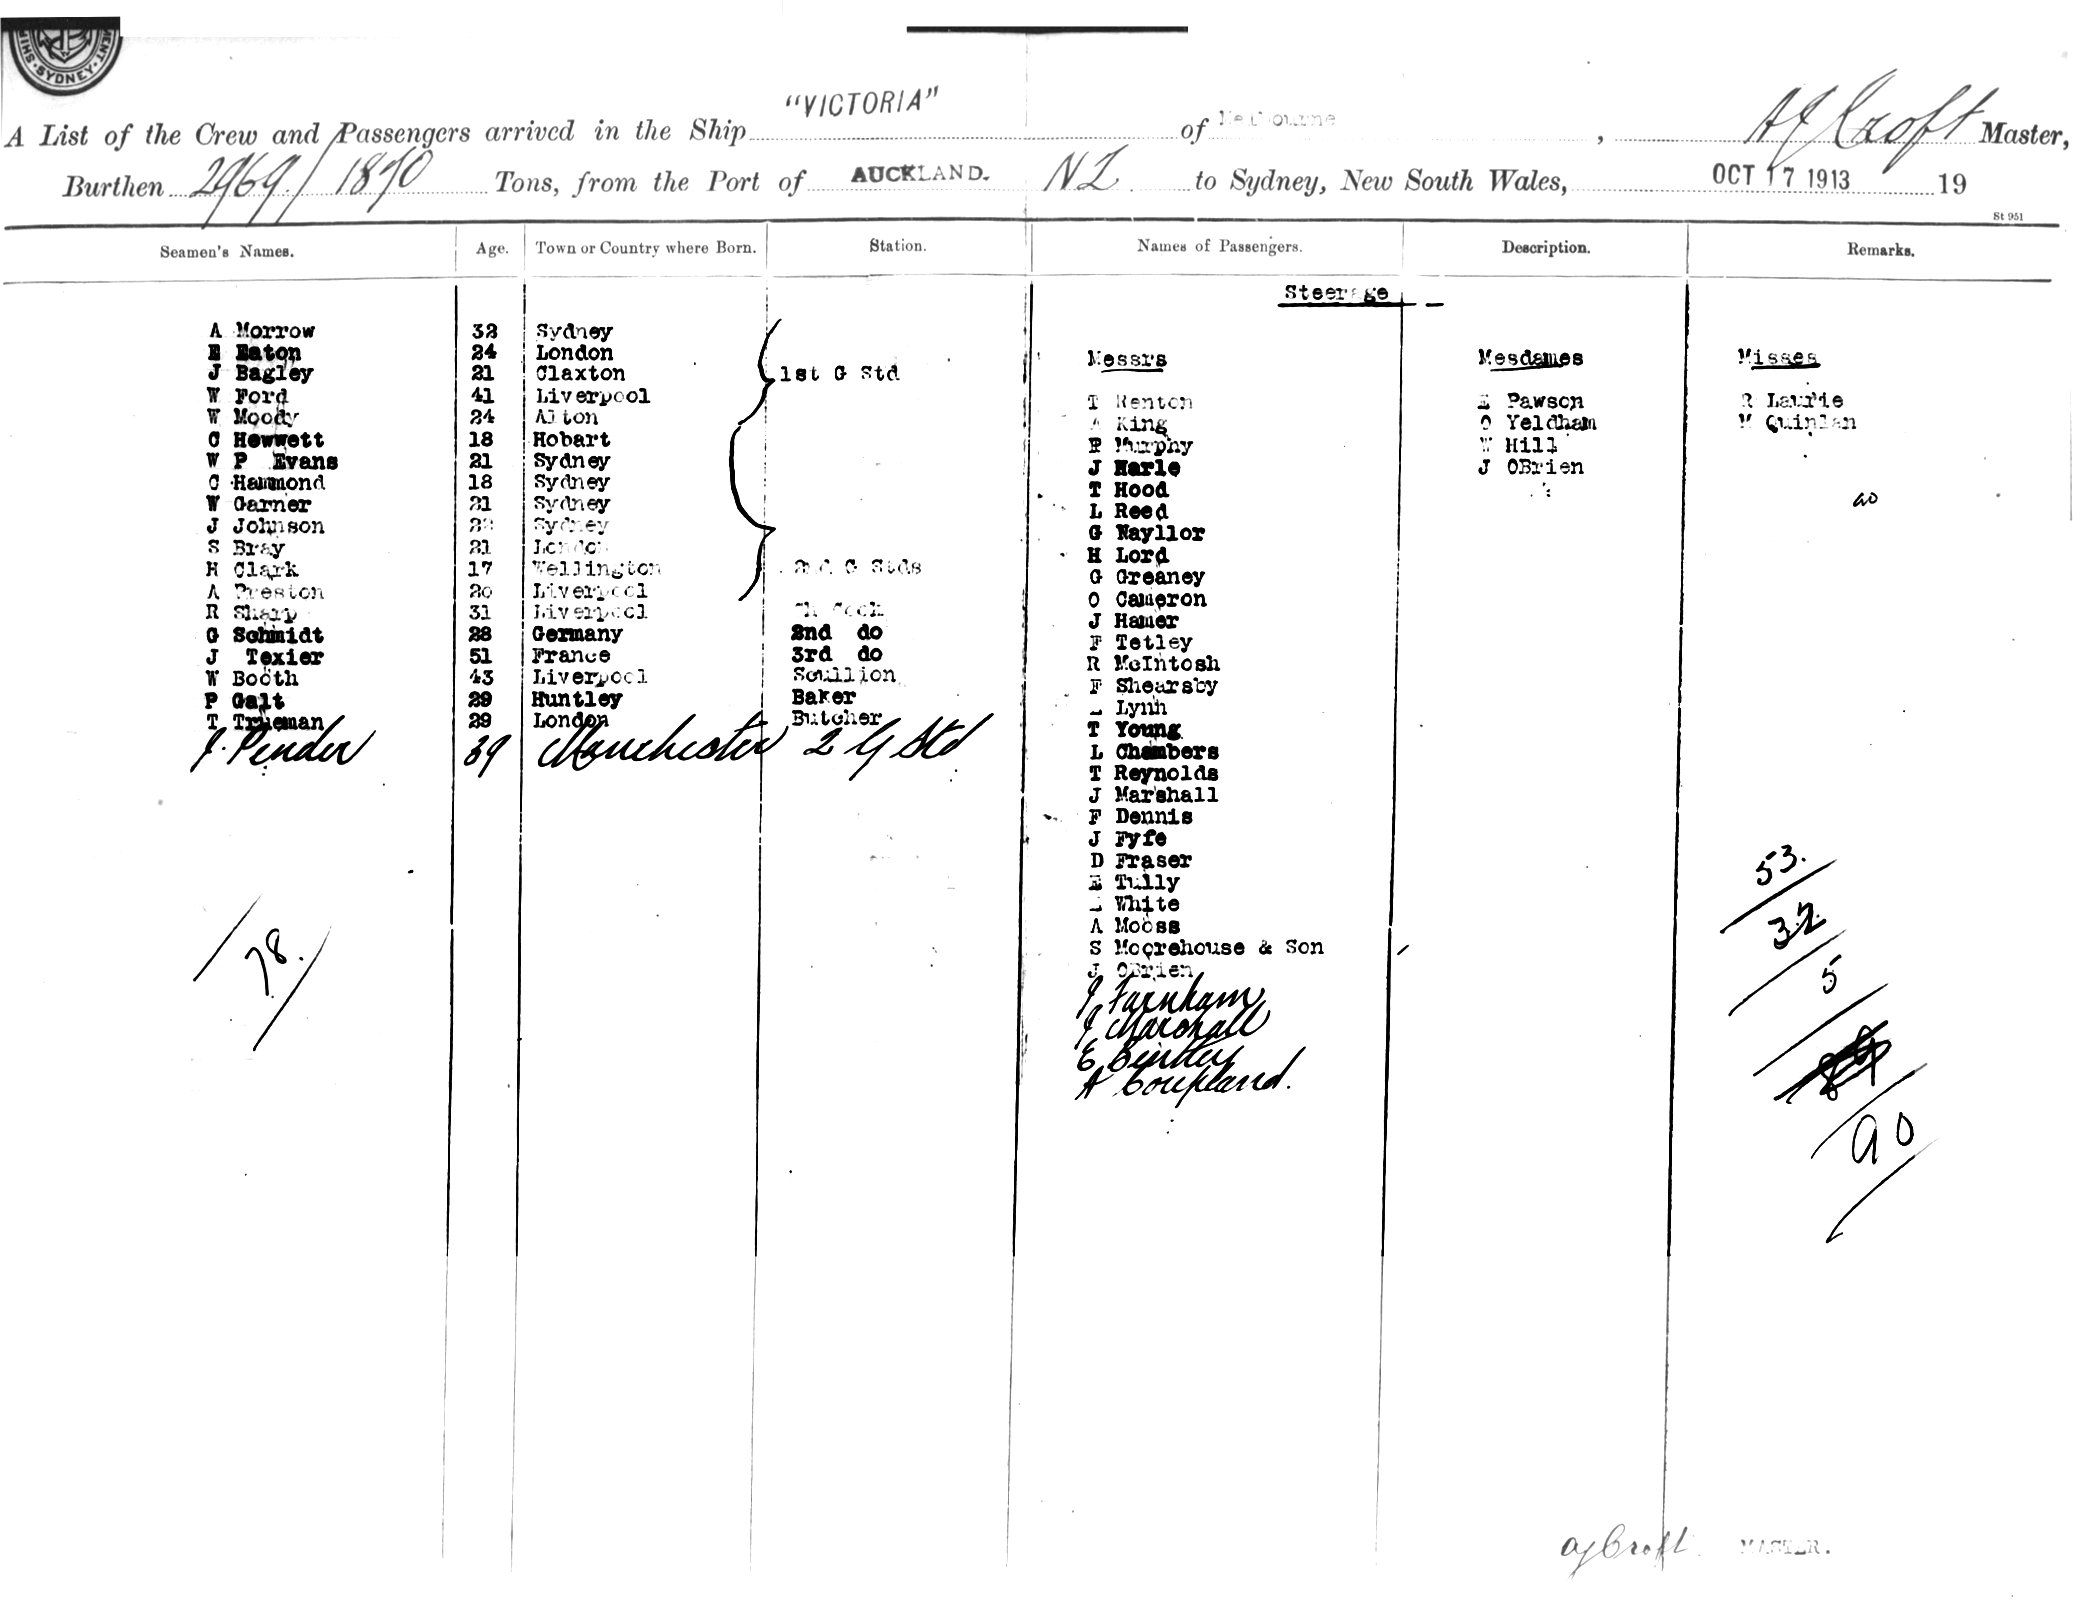 SYDNEY
A List of the Crew and Passengers arrived in the Ship "VICTORIA" of Melbourne, A J Croft Master,
Burthen 2969/1870 Tons, from the Port of AUCKLAND. NZ to Sydney, New South Wales, OCT 17 1913 19
St 951
Seamen's Names. Age. Town or Country where Born. Station. Names of Passengers. Description. Remarks.
Steerage
A Morrow 32 Sydney
E Eaton 24 London
J Bagley 21 Claxton 1st G Std
W Ford 41 Liverpool
W Moody 24 Alton
C Hewwett 18 Hobart
W P Evans 21 Sydney
C Hammond 18 Sydney
W Garner 21 Sydney
J Johnson Sydney
S Bray 21 London
H Clark 17 Wellington 2nd G Stds
A Preston 20 Liverpool
R Sharp 31 Liverpool Ch Cook
G Schmidt 28 Germany 2nd do
J Texier 51 France 3rd do
W Booth 43 Liverpool Scullion
P Galt 29 Huntley Baker
T Trueman 29 London Butcher
J. Pender 39 Manchester 2 G Std
78.
Messrs
T Renton
A King
P Murphy
J Harle
T Hood
L Reed
G Nayllor
H Lord
G Greaney
O Cameron
J Hamer
F Tetley
R McIntosh
F Shearsby
Lynn
T Young
L Chambers
T Reynolds
J Marshall
F Dennis
J Fyfe
D Fraser
E Tully
White
A Mooss
S Moorehouse & Son
J OBrien
J Farnham
J Marshall
E
A Coupland.
Mesdames
E Pawson
O Yeldham
W Hill
J OBrien
Misses
R Laurie
M Quinlan
53.
32
5
90
A J Croft MASTER.